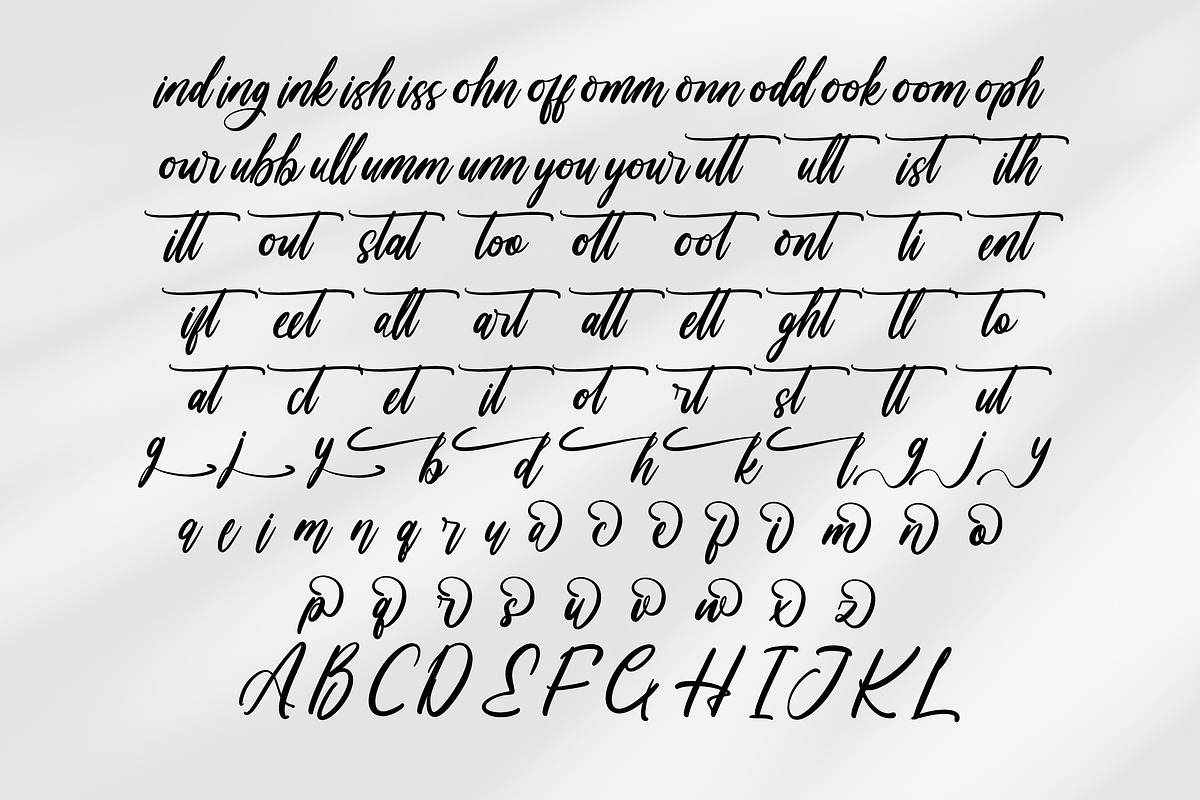 ind ing ink ish iss ohn off omm onn odd ook oom oph
our ubb ull umm unn you your utt ult ist ith
itt out stat too ott oot ont ti ent
ift eet alt art att ett ght tl to
at ct et it ot rt st tt ut
g j y b d h k l g j y
a e i m n q r u a c e p i m n o
p q r s u v w x z
A B C D E F G H I J K L